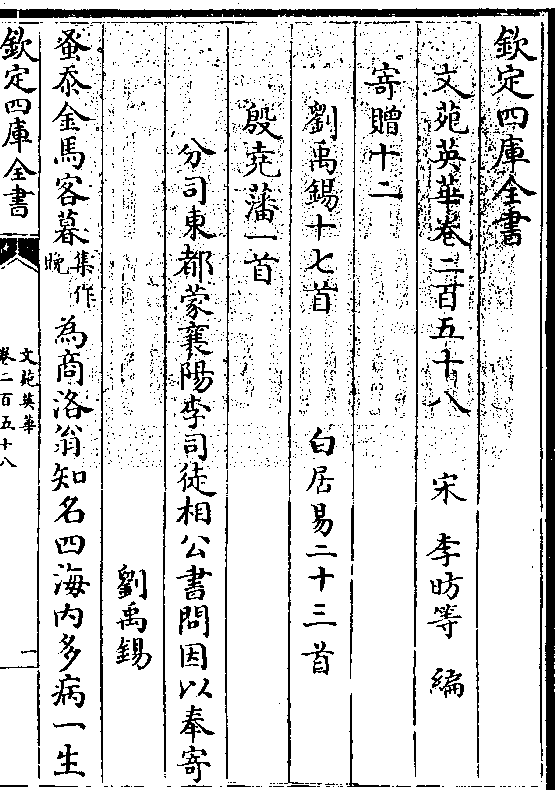 欽定四庫全書
文苑英華卷二百五十八　宋　李昉等　編
寄贈十二
劉禹錫十七首　白居易二十三首
殷堯藩一首
分司東都蒙襄陽李司徒相公書問因以奉寄
劉禹錫
蚤忝金馬客暮集作晚為商洛翁知名四海內多病一生
欽定四庫全書
文苑英華
卷二百五十八
一